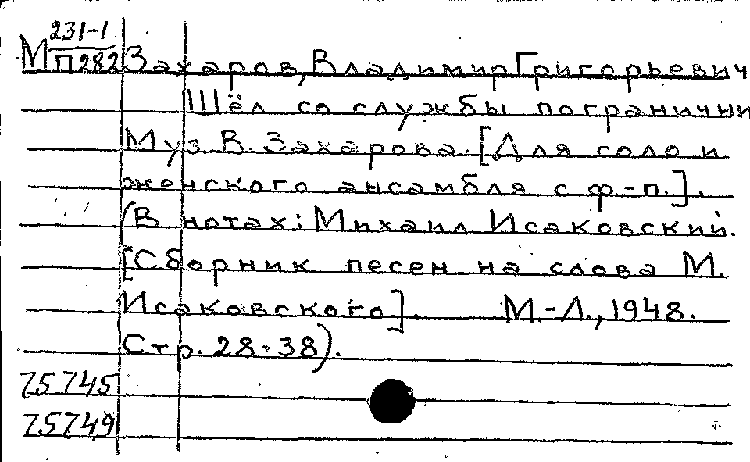 231-1
М П282 Захаров, Владимир Григорьевич
Шёл со службы пограничник
Муз. В. Захарова. [Для соло и
женского ансамбля с ф-п.].
(В нотах: Михаил Исаковский.
[Сборник песен на слова М.
Исаковского]. М.-Л., 1948.
Стр. 28-38).
75745
75749